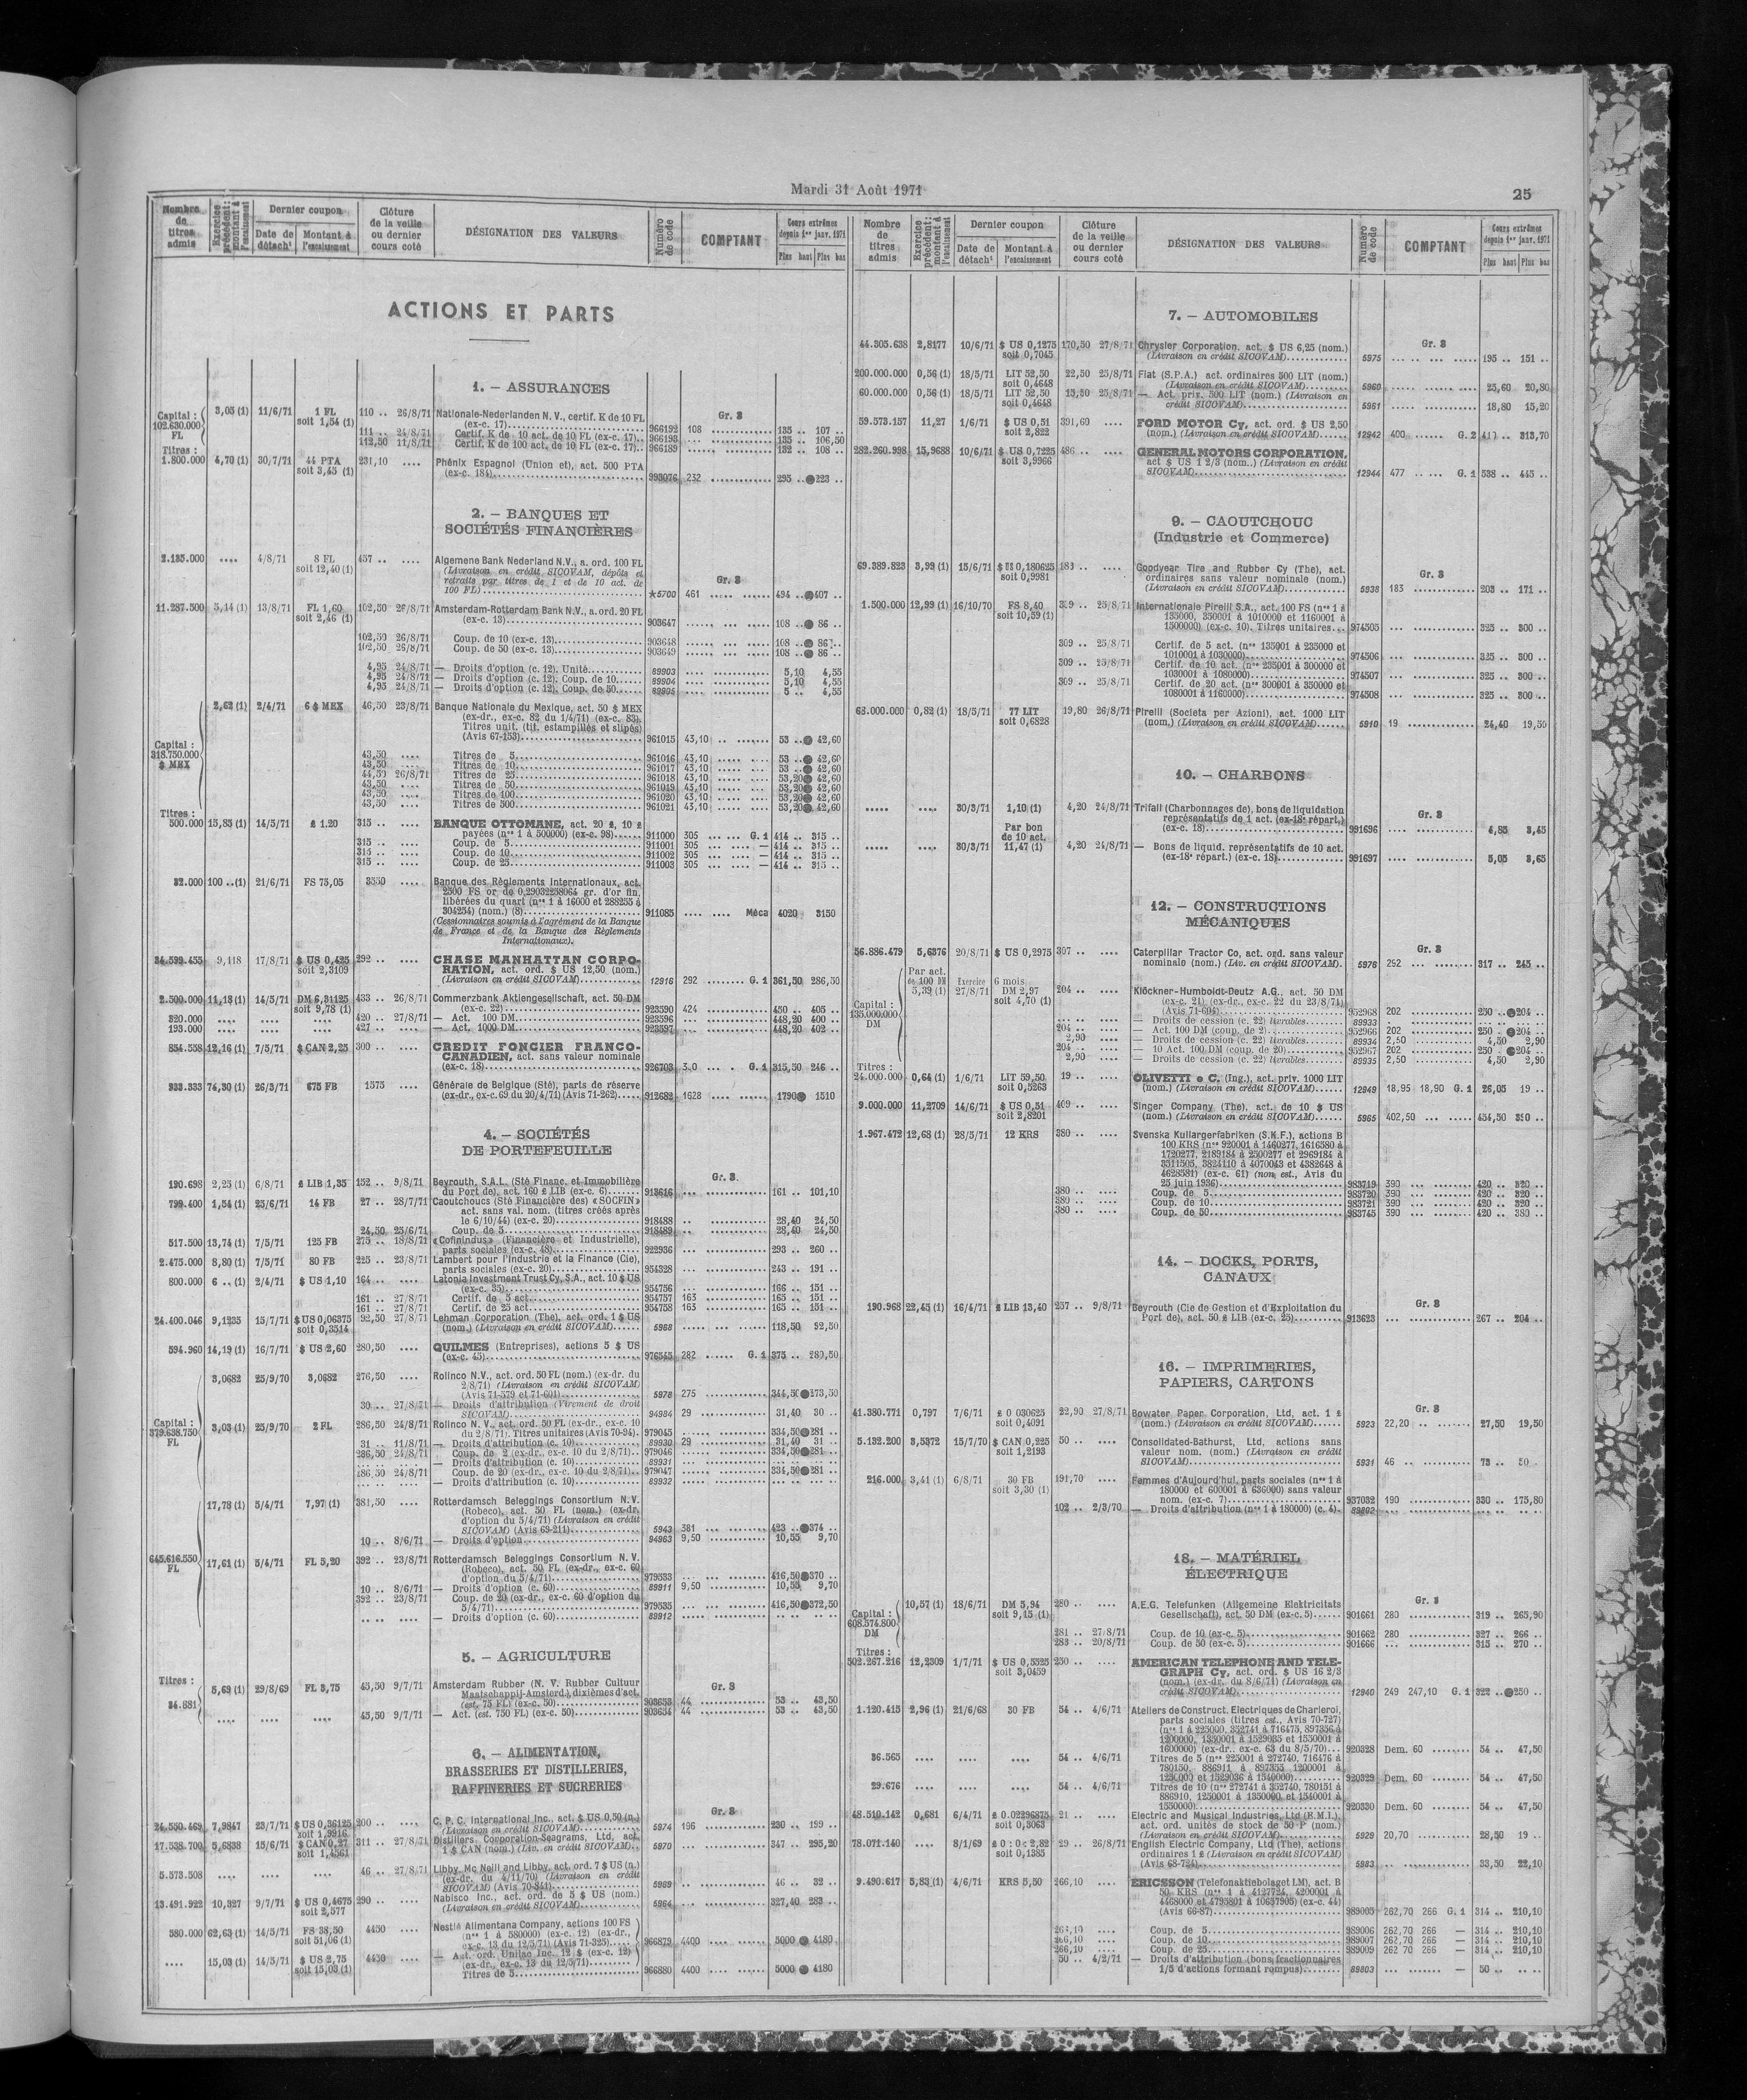 Mardi 31 Août 1971
25
Nombre de titres admis
Exercice précédent : montant à l'encaissement
Dernier coupon
Date de détach^t
Montant à l'encaissement
Clôture de la veille ou dernier cours coté
DÉSIGNATION DES VALEURS
Numéro de code
COMPTANT
Cours extrêmes depuis 1er janv. 1971
Plus haut
Plus bas
ACTIONS ET PARTS
1. — ASSURANCES
Gr. 3
Capital : 102.630.000 FL
3,05 (1) 11/6/71 1 FL soit 1,54 (1) 110 .. 26/8/71 Nationale-Nederlanden N.V., certif. K de 10 FL
(ex-c. 17) 966192 108 135 .. 107 ..
111 .. 24/8/71 Certif. K de 10 act. de 10 FL (ex-c. 17) 966193 135 .. 106,50
112,50 11/8/71 Certif. K de 100 act. de 10 FL (ex-c. 17) 966189 132 .. 108 ..
Titres :
1.800.000 4,70 (1) 30/7/71 44 PTA soit 3,45 (1) 231,10 Phénix Espagnol (Union et), act. 500 PTA
(ex-c. 184) 993076 232 295 .. ●223 ..
2. — BANQUES ET
SOCIÉTÉS FINANCIÈRES
Gr. 3
2.135.000 .... 4/8/71 8 FL soit 12,40 (1) 457 .. Algemene Bank Nederland N.V., a. ord. 100 FL
(Livraison en crédit SICOVAM, dépôts et
retraits par titres de 1 et de 10 act. de
100 FL) ★5700 461 494 .. ●407 ..
11.287.500 5,14 (1) 13/8/71 FL 1,60 soit 2,46 (1) 102,50 26/8/71 Amsterdam-Rotterdam Bank N.V., a. ord. 20 FL
(ex-c. 13) 903647 108 .. ● 86 ..
102,50 26/8/71 Coup. de 10 (ex-c. 13) 903648 108 .. ● 86 ..
102,50 26/8/71 Coup. de 50 (ex-c. 13) 903649 108 .. ● 86 ..
4,95 24/8/71 — Droits d'option (c. 12). Unité 89903 5,10 4,55
4,95 24/8/71 — Droits d'option (c. 12). Coup. de 10 89904 5,10 4,55
4,95 24/8/71 — Droits d'option (c. 12). Coup. de 50 89905 5 .. 4,55
Capital : 318.750.000 $ MEX
2,62 (1) 2/4/71 6 $ MEX 46,50 23/8/71 Banque Nationale du Mexique, act. 50 $ MEX
(ex-dr., ex-c. 82 du 1/4/71) (ex-c. 83).
Titres unit. (tit. estampillés et slipés)
(Avis 67-153) 961015 43,10 53 .. ● 42,60
43,50 Titres de 5 961016 43,10 53 .. ● 42,60
43,50 Titres de 10 961017 43,10 53 .. ● 42,60
44,50 26/8/71 Titres de 25 961018 43,10 53,20 ● 42,60
43,50 Titres de 50 961019 43,10 53,20 ● 42,60
43,50 Titres de 100 961020 43,10 53,20 ● 42,60
43,50 Titres de 500 961021 43,10 53,20 ● 42,60
Titres :
500.000 15,83 (1) 14/5/71 £ 1.20 315 .. BANQUE OTTOMANE, act. 20 £, 10 £
payées (n^os 1 à 500000) (ex-c. 98) 911000 305 G. 1 414 .. 315 ..
315 .. Coup. de 5 911001 305 — 414 .. 315 ..
315 .. Coup. de 10 911002 305 — 414 .. 315 ..
315 .. Coup. de 25 911003 305 — 414 .. 315 ..
32.000 100 .. (1) 21/6/71 FS 75,05 3550 Banque des Règlements Internationaux, act.
2500 FS or de 0,29032258064 gr. d'or fin,
libérées du quart (n^os 1 à 16000 et 288255 à
304254) (nom.) (8) 911085 Méca 4020 3150
(Cessionnaires soumis à l'agrément de la Banque
de France et de la Banque des Règlements
Internationaux).
34.599.455 9,118 17/8/71 $ US 0,425 soit 2,3109 292 .. CHASE MANHATTAN CORPO-
RATION, act. ord. $ US 12,50 (nom.)
(Livraison en crédit SICOVAM) 12916 292 G. 1 361,50 286,50
2.500.000 11,13 (1) 14/5/71 DM 6,31125 soit 9,78 (1) 433 .. 26/8/71 Commerzbank Aktiengesellschaft, act. 50 DM
(ex-c. 22) 923590 424 450 .. 405 ..
320.000 420 .. 27/8/71 — Act. 100 DM 923596 448,20 400 ..
193.000 427 .. — Act. 1000 DM 923597 448,20 402 ..
854.558 12,16 (1) 7/5/71 $ CAN 2,25 300 .. CREDIT FONCIER FRANCO-
CANADIEN, act. sans valeur nominale
(ex-c. 18) 926703 G. 1 315,50 246 ..
933.333 74,30 (1) 26/3/71 675 FB 1575 Générale de Belgique (Sté), parts de réserve
(ex-dr., ex-c. 69 du 20/4/71) (Avis 71-262) 912682 1628 1790 ● 1510
4. — SOCIÉTÉS
DE PORTEFEUILLE
Gr. 3
190.698 2,25 (1) 6/8/71 £ LIB 1,35 152 .. 9/8/71 Beyrouth, S.A.L. (Sté Financ. et Immobilière
du Port de), act. 160 £ LIB (ex-c. 6) 913616 161 .. 101,10
799.400 1,54 (1) 25/6/71 14 FB 27 .. 28/7/71 Caoutchoucs (Sté Financière des) « SOCFIN »
act. sans val. nom. (titres créés après
le 6/10/44) (ex-c. 20) 918488 28,40 24,50
24,50 25/6/71 Coup. de 5 918489 28,40 24,50
517.500 13,74 (1) 7/5/71 125 FB 275 .. 18/8/71 « Cofinindus » (Financière et Industrielle),
parts sociales (ex-c. 48) 922936 293 .. 260 ..
2.475.000 8,80 (1) 7/5/71 80 FB 225 .. 23/8/71 Lambert pour l'Industrie et la Finance (Cie),
parts sociales (ex-c. 20) 954328 243 .. 191 ..
800.000 6 .. (1) 2/4/71 $ US 1,10 164 .. Latonia Investment Trust Cy, S.A., act. 10 $ US
(ex-c. 35) 954756 166 .. 151 ..
161 .. 27/8/71 Certif. de 5 act. 954757 163 165 .. 151 ..
161 .. 27/8/71 Certif. de 25 act. 954758 163 165 .. 151 ..
24.400.046 9,1235 15/7/71 $ US 0,06375 soit 0,3514 92,50 27/8/71 Lehman Corporation (The), act. ord. 1 $ US
(nom.) (Livraison en crédit SICOVAM) 5968 118,50 92,50
594.960 14,19 (1) 16/7/71 $ US 2,60 280,50 QUILMES (Entreprises), actions 5 $ US
(ex-c. 45) 976545 282 G. 1 375 .. 280,50
Capital : 379.638.750 FL
3,0682 25/9/70 3,0682 276,50 Rolinco N.V., act. ord. 50 FL (nom.) (ex-dr. du
2/8/71) (Livraison en crédit SICOVAM)
(Avis 71-579 et 71-601) 5978 275 344,50 ●273,50
30 .. 27/8/71 — Droits d'attribution (Virement de droit
SICOVAM) 94984 29 31,40 30 ..
3,03 (1) 25/9/70 2 FL 286,50 24/8/71 Rolinco N.V., act. ord. 50 FL (ex-dr., ex-c. 10
du 2/8/71). Titres unitaires (Avis 70-94) 979045 334,50 ●281 ..
31 .. 11/8/71 — Droits d'attribution (c. 10) 89930 29 31,40 31 ..
286,50 24/8/71 Coup. de 2 (ex-dr., ex-c. 10 du 2/8/71) 979046 334,50 ●281 ..
— Droits d'attribution (c. 10) 89931
286,50 24/8/71 Coup. de 20 (ex-dr., ex-c. 10 du 2/8/71) 979047 334,50 ●281 ..
— Droits d'attribution (c. 10) 89932
645.616.550 FL
17,78 (1) 5/4/71 7,97 (1) 381,50 Rotterdamsch Beleggings Consortium N.V.
(Robeco), act. 50 FL (nom.) (ex-dr.
d'option du 5/4/71) (Livraison en crédit
SICOVAM) (Avis 69-211) 5943 381 423 .. ●374 ..
10 .. 8/6/71 — Droits d'option 94963 9,50 10,55 9,70
17,61 (1) 5/4/71 FL 5,20 392 .. 23/8/71 Rotterdamsch Beleggings Consortium N.V.
(Robeco), act. 50 FL (ex-dr., ex-c. 60
d'option du 5/4/71) 979533 416,50 ●370 ..
10 .. 8/6/71 — Droits d'option (c. 60) 89911 9,50 10,55 9,70
392 .. 23/8/71 Coup. de 20 (ex-dr., ex-c. 60 d'option du
5/4/71) 979535 416,50 ●372,50
— Droits d'option (c. 60) 89912
5. — AGRICULTURE
Gr. 3
Titres :
34.881 5,69 (1) 29/8/69 FL 3,75 45,50 9/7/71 Amsterdam Rubber (N.V. Rubber Cultuur
Maatschappij-Amsterd.), dixièmes d'act.
(est. 75 FL) (ex-c. 50) 903653 44 53 .. 43,50
45,50 9/7/71 — Act. (est. 750 FL) (ex-c. 50) 903654 44 53 .. 43,50
6. — ALIMENTATION,
BRASSERIES ET DISTILLERIES,
RAFFINERIES ET SUCRERIES
Gr. 3
24.550.469 7,9847 23/7/71 $ US 0,36125 soit 1,9916 200 .. C.P.C. International Inc., act. $ US 0,50 (n.)
(Livraison en crédit SICOVAM) 5974 196 230 .. 199 ..
17.538.700 5,6838 15/6/71 $ CAN 0,27 soit 1,4561 311 .. 27/8/71 Distillers Corporation-Seagrams, Ltd, act.
1 $ CAN (nom.) (Liv. en crédit SICOVAM) 5970 347 .. 295,20
5.573.508 46 .. 27/8/71 Libby, Mc Neill and Libby, act. ord. 7 $ US (n.)
(ex-dr. du 4/11/70) (Livraison en crédit
SICOVAM) (Avis 70-841) 5969 46 .. 32 ..
13.491.922 10,327 9/7/71 $ US 0,4675 soit 2,577 290 .. Nabisco Inc., act. ord. de 5 $ US (nom.)
(Livraison en crédit SICOVAM) 5964 327,40 283 ..
580.000 62,63 (1) 14/5/71 FS 38,50 soit 51,06 (1) 4450 Nestlé Alimentana Company, actions 100 FS
(n^os 1 à 580000) (ex-c. 12) (ex-dr.,
ex-c. 13 du 12/5/71) (Avis 71-325) 966879 4400 5000 ● 4180
.... 15,03 (1) 14/5/71 $ US 2,75 soit 15,03 (1) 4450 — Act. ord. Unilac Inc. 12 $ (ex-c. 12)
(ex-dr., ex-c. 13 du 12/5/71)
Titres de 5 966880 4400 5000 ● 4180
Nombre de titres admis
Exercice précédent : montant à l'encaissement
Dernier coupon
Date de détach^t
Montant à l'encaissement
Clôture de la veille ou dernier cours coté
DÉSIGNATION DES VALEURS
Numéro de code
COMPTANT
Cours extrêmes depuis 1er janv. 1971
Plus haut
Plus bas
7. — AUTOMOBILES
Gr. 3
44.305.638 2,8177 10/6/71 $ US 0,1275 soit 0,7045 170,50 27/8/71 Chrysler Corporation, act. $ US 6,25 (nom.)
(Livraison en crédit SICOVAM) 5975 195 .. 151 ..
200.000.000 0,56 (1) 18/5/71 LIT 52,50 soit 0,4648 22,50 25/8/71 Fiat (S.P.A.) act. ordinaires 500 LIT (nom.)
(Livraison en crédit SICOVAM) 5960 25,60 20,80
60.000.000 0,56 (1) 18/5/71 LIT 52,50 soit 0,4648 15,50 25/8/71 — Act. priv. 500 LIT (nom.) (Livraison en
crédit SICOVAM) 5961 18,80 15,20
59.573.157 11,27 1/6/71 $ US 0,51 soit 2,822 391,60 FORD MOTOR Cy, act. ord. $ US 2,50
(nom.) (Livraison en crédit SICOVAM) 12942 400 G. 2 313,70
282.260.998 15,9688 10/6/71 $ US 0,7225 soit 3,9966 486 .. GENERAL MOTORS CORPORATION,
act $ US 1 2/3 (nom..) (Livraison en crédit
SICOVAM) 12944 477 G. 1 538 .. 445 ..
9. — CAOUTCHOUC
(Industrie et Commerce)
Gr. 3
69.389.823 3,99 (1) 15/6/71 $ US 0,180625 soit 0,9981 183 .. Goodyear Tire and Rubber Cy (The), act.
ordinaires sans valeur nominale (nom.)
(Livraison en crédit SICOVAM) 5938 183 203 .. 171 ..
1.500.000 12,99 (1) 16/10/70 FS 8,40 soit 10,59 (1) 309 .. 25/8/71 Internationale Pirelli S.A., act. 100 FS (n^os 1 à
135000, 350001 à 1010000 et 1160001 à
1500000) (ex-c. 10). Titres unitaires 974505 325 .. 300 ..
309 .. 25/8/71 Certif. de 5 act. (n^os 135001 à 235000 et
1010001 à 1030000) 974506 325 .. 300 ..
309 .. 25/8/71 Certif. de 10 act. (n^os 235001 à 300000 et
1030001 à 1080000) 974507 325 .. 300 ..
309 .. 25/8/71 Certif. de 20 act. (n^os 300001 à 350000 et
1080001 à 1160000) 974508 325 .. 300 ..
63.000.000 0,82 (1) 18/5/71 77 LIT soit 0,6828 19,80 26/8/71 Pirelli (Societa per Azioni), act. 1000 LIT
(nom.) (Livraison en crédit SICOVAM) 5910 19 24,40 19,50
10. — CHARBONS
Gr. 3
30/3/71 1,10 (1) 4,20 24/8/71 Trifail (Charbonnages de), bons de liquidation
représentatifs de 1 act. (ex-18^e répart.)
(ex-c. 18) 991696 4,85 3,45
30/3/71 Par bon de 10 act. 11,47 (1) 4,20 24/8/71 — Bons de liquid. représentatifs de 10 act.
(ex-18^e répart.) (ex-c. 18) 991697 5,05 3,65
12. — CONSTRUCTIONS
MÉCANIQUES
Gr. 3
56.886.479 5,6376 20/8/71 $ US 0,2975 307 .. Caterpillar Tractor Co, act. ord. sans valeur
nominale (nom.) (Liv. en crédit SICOVAM) 5976 252 317 .. 245 ..
Capital : 135.000.000 DM
Par act. de 100 DM 5,39 (1) Exercice 6 mois 27/8/71 DM 2,97 soit 4,70 (1) 204 .. Klöckner-Humboldt-Deutz A.G., act. 50 DM
(ex-c. 21) (ex-dr., ex-c. 22 du 23/8/71)
(Avis 71-604) 952968 202 250 .. ●204 ..
— Droits de cession (c. 22) livrables 89933
204 .. — Act. 100 DM (coup. de 2) 952966 202 250 .. ●204 ..
2,90 — Droits de cession (c. 22) livrables 89934 2,50 4,50 2,90
204 .. — 10 Act. 100 DM (coup. de 20) 952967 202 250 .. ●204 ..
2,90 — Droits de cession (c. 22) livrables 89935 2,50 4,50 2,90
Titres :
24.000.000 0,64 (1) 1/6/71 LIT 59,50 soit 0,5263 19 .. OLIVETTI e C. (Ing.), act. priv. 1000 LIT
(nom.) (Livraison en crédit SICOVAM) 12949 18,95 18,90 G. 1 26,05 19 ..
9.000.000 11,2709 14/6/71 $ US 0,51 soit 2,8201 409 .. Singer Company (The), act. de 10 $ US
(nom.) (Livraison en crédit SICOVAM) 5965 402,50 454,50 350 ..
1.967.472 12,68 (1) 28/5/71 12 KRS 380 .. Svenska Kullargerfabriken (S.K.F.), actions B
100 KRS (n^os 920001 à 1460277, 1616580 à
1720277, 2189184 à 2500277 et 2969184 à
3311505, 3824110 à 4070043 et 4382648 à
4628581) (ex-c. 61) (non est., Avis du
25 juin 1936) 983719 390 420 .. 320 ..
380 .. Coup. de 5 983720 390 420 .. 320 ..
380 .. Coup. de 10 983721 390 420 .. 320 ..
380 .. Coup. de 50 983745 390 420 .. 380 ..
14. — DOCKS, PORTS,
CANAUX
Gr. 3
190.968 22,45 (1) 16/4/71 £ LIB 13,40 257 .. 9/8/71 Beyrouth (Cie de Gestion et d'Exploitation du
Port de), act. 50 £ LIB (ex-c. 25) 913623 267 .. 204 ..
16. — IMPRIMERIES,
PAPIERS, CARTONS
Gr. 3
41.380.771 0,797 7/6/71 £ 0 030625 soit 0,4091 22,90 27/8/71 Bowater Paper Corporation, Ltd, act. 1 £
(nom.) (Livraison en crédit SICOVAM) 5923 22,20 27,50 19,50
5.132.200 3,5372 15/7/70 $ CAN 0,225 soit 1,2193 50 .. Consolidated-Bathurst, Ltd, actions sans
valeur nom. (nom.) (Livraison en crédit
SICOVAM) 5931 46 73 .. 50 ..
216.000 3,41 (1) 6/8/71 30 FB soit 3,30 (1) 191,70 Femmes d'Aujourd'hui, parts sociales (n^os 1 à
180000 et 600001 à 636000) sans valeur
nom. (ex-c. 7) 937032 190 330 .. 175,80
102 .. 2/3/70 — Droits d'attribution (n^os 1 à 180000) (c. 4) 89802
18. — MATÉRIEL
ÉLECTRIQUE
Gr. 3
Capital : 608.574.800 DM
10,57 (1) 18/6/71 DM 5,94 soit 9,15 (1) 280 .. A.E.G. Telefunken (Allgemeine Elektricitats
Gesellschaft), act. 50 DM (ex-c. 5) 901661 280 319 .. 265,90
281 .. 27/8/71 Coup. de 10 (ex-c. 5) 901662 280 327 .. 266 ..
283 .. 20/8/71 Coup. de 50 (ex-c. 5) 901666 315 .. 270 ..
Titres :
502.267.216 12,2309 1/7/71 $ US 0,5525 soit 3,0459 250 .. AMERICAN TELEPHONE AND TELE-
GRAPH Cy, act. ord. $ US 16 2/3
(nom.) (ex-dr. du 8/6/71) (Livraison en
crédit SICOVAM) 12940 249 247,10 G. 1 322 .. ●250 ..
1.120.415 2,96 (1) 21/6/68 30 FB 54 .. 4/6/71 Ateliers de Construct. Electriques de Charleroi,
parts sociales (titres est., Avis 70-727)
(n^os 1 à 225000, 352741 à 716475, 897356 à
1200000, 1350001 à 1529035 et 1550001 à
1600000) (ex-dr., ex-c. 63 du 8/5/70) 920328 Dem. 60 54 .. 47,50
36.565 54 .. 4/6/71 Titres de 5 (n^os 225001 à 272740, 716476 à
780150, 886911 à 897355 1200001 à
1250000 et 1529036 à 1540000) 920329 Dem. 60 54 .. 47,50
29.676 54 .. 4/6/71 Titres de 10 (n^os 272741 à 352740, 780151 à
886910, 1250001 à 1350000 et 1540001 à
1550000) 920330 Dem. 60 54 .. 47,50
48.510.142 0,681 6/4/71 £ 0.02296875 soit 0,3063 21 .. Electric and Musical Industries, Ltd (E.M.I.),
act. ord. unités de stock de 50 P (nom.)
(Livraison en crédit SICOVAM) 5929 20,70 28,50 19 ..
78.071.140 8/1/69 soit 0,1385 29 .. 26/8/71 English Electric Company, Ltd (The), actions
ordinaires 1 £ (Livraison en crédit SICOVAM)
(Avis 68-724) 5983 33,50 22,10
9.490.617 5,83 (1) 4/6/71 KRS 5,50 266,10 ERICSSON (Telefonaktiebolaget LM), act. B
50 KRS (n^os 1 à 4127724, 4200001 à
4468000 et 4795801 à 10637905) (ex-c. 44)
(Avis 66-87) 989005 262,70 266 G. 1 314 .. 210,10
266,10 Coup. de 5 989006 262,70 266 — 314 .. 210,10
266,10 Coup. de 10 989007 262,70 266 — 314 .. 210,10
266,10 Coup. de 25 989009 262 70 266 — 314 .. 210,10
50 .. 4/2/71 — Droits d'attribution (bons fractionnaires
1/5 d'actions formant rompus) 89803 — 50 ..